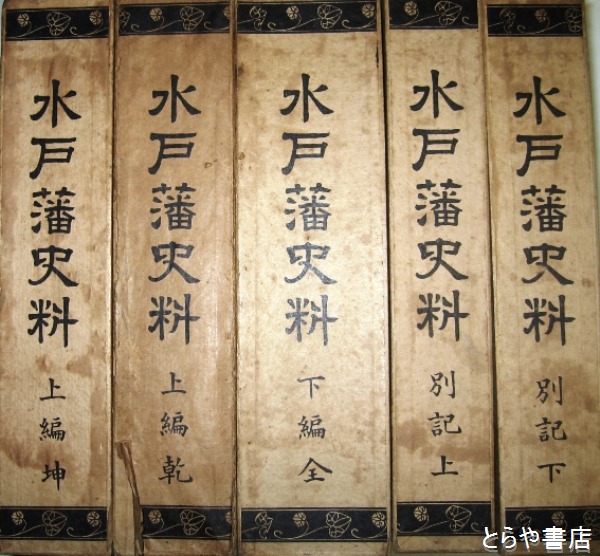 水戸藩史料 上編 坤
水戸藩史料 上編 乾
水戸藩史料 下編 全
水戸藩史料 別記 上
水戸藩史料 別記 下
とらや書店